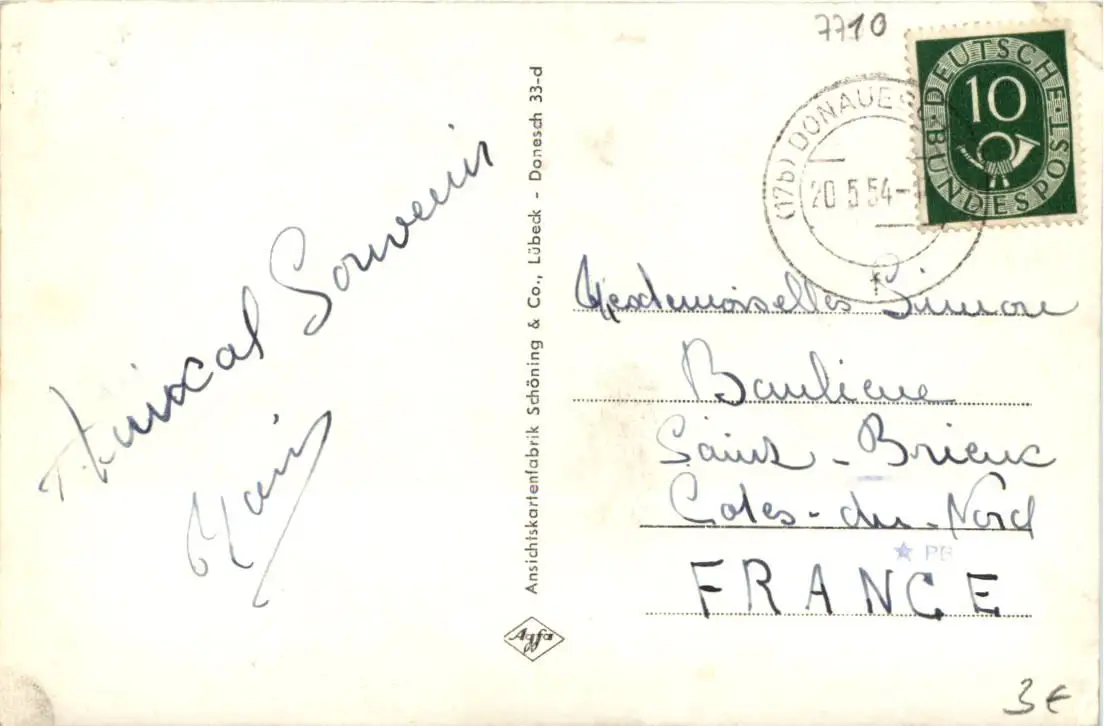 7710
DEUTSCHE BUNDESPOST
10
(17b) DONAUE
20.5.54-
f
Amical Souvenir
Ansichtskartenfabrik Schöning & Co., Lübeck - Donesch 33-d
Agfa
Mesdemoiselles Simon
Saint-Brieuc
Cotes-du-Nord
PB
FRANCE
3€